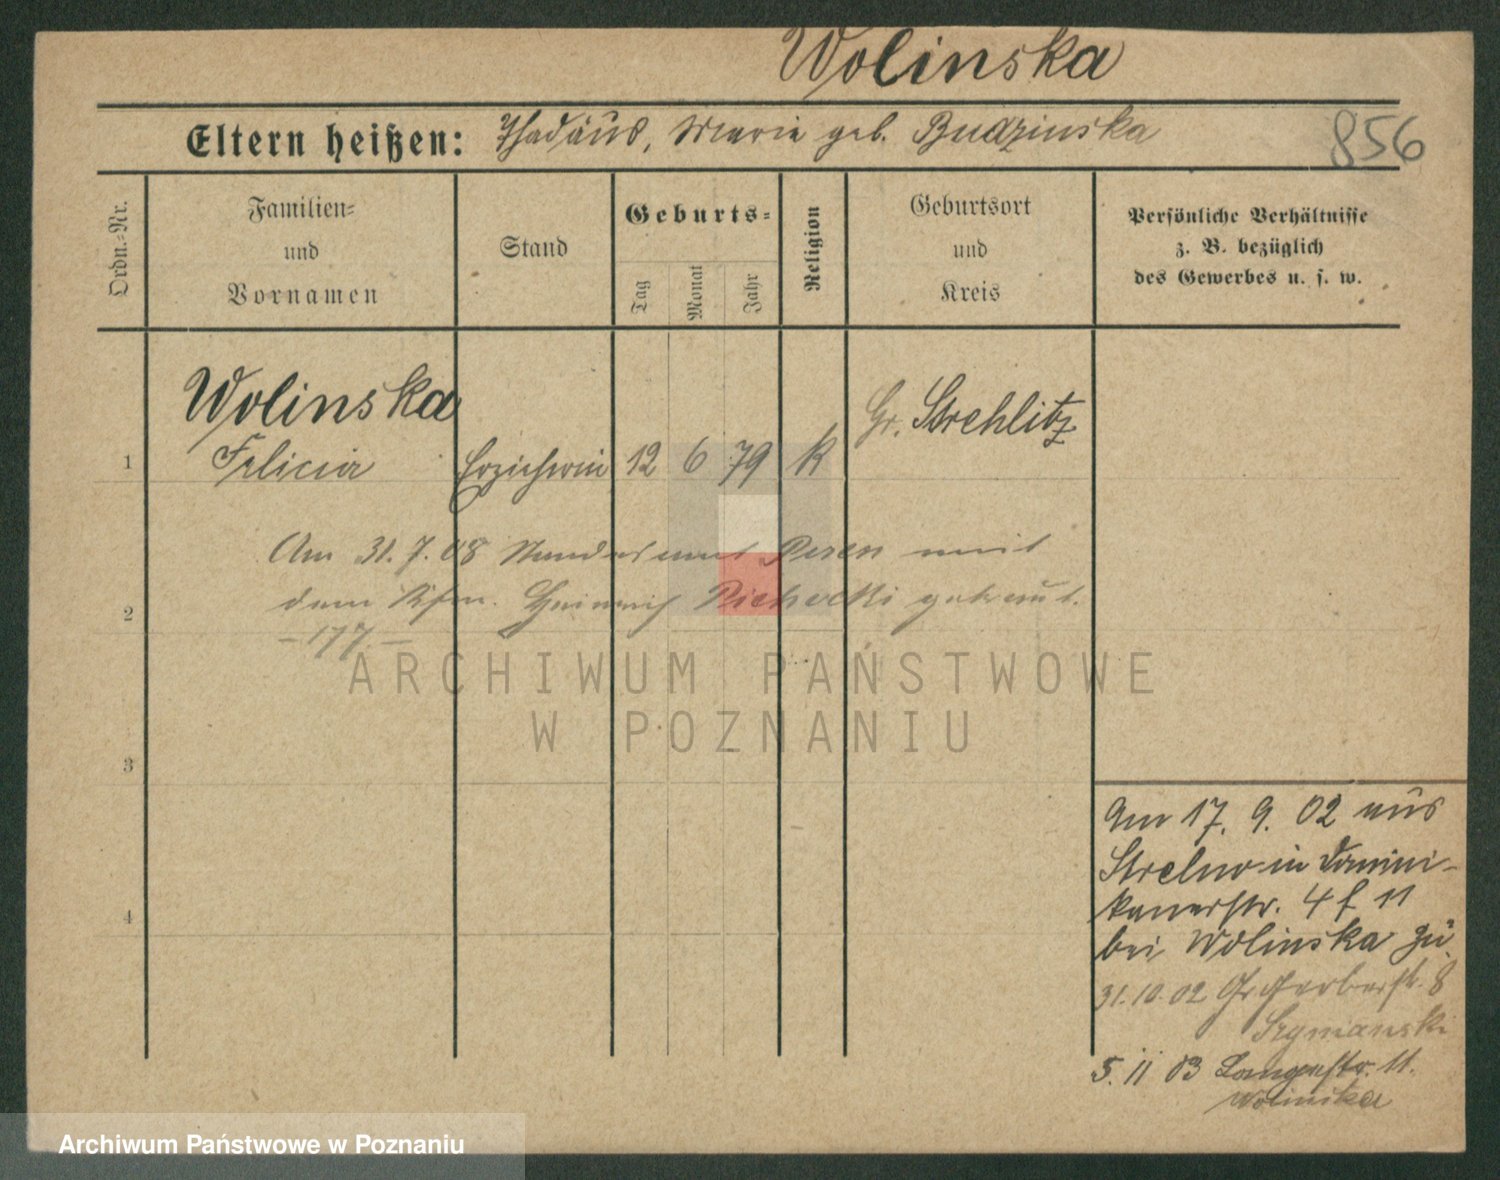 Wolinska
Eltern heißen: Thadäus, Maria geb. Budzinska
856
Ordn.-Nr.
Familien-
und
Vornamen
Stand
Geburts-
Tag
Monat
Jahr
Religion
Geburtsort
und
Kreis
Persönliche Verhältnisse
z. B. bezüglich
des Gewerbes u. s. w.
Wolinska
Gr. Strehlitz
1 Felicia Erzieherin 12 6 79 K
Am 31. 7. 08 Standesamt Posen mit
2 dem Kfm. Heinrich Piechocki getraut.
– 177 –
ARCHIWUM PAŃSTWOWE
W POZNANIU
3
4
Am 17. 9. 02 aus
Strelno in Domini-
kanerstr. 4 f 11
bei Wolinska zu.
31. 10. 02 Gr Gerberstr. 8
Szymanski
5. 11 03 Langestr. 11.
Wolinska
Archiwum Państwowe w Poznaniu